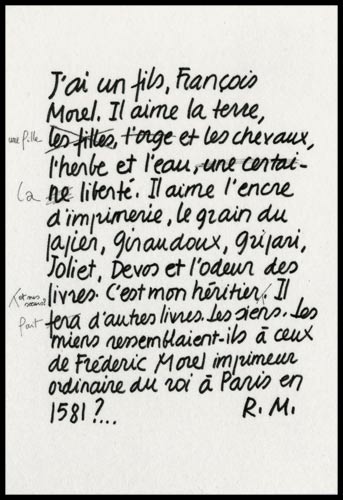 J'ai un fils, François
Morel. Il aime la terre,
une fille les filles, l'orge et les chevaux,
l'herbe et l'eau, une certai-
la ne liberté. Il aime l'encre
d'imprimerie, le grain du
papier, Giraudoux, Gripari,
Joliet, Devos et l'odeur des
livres. C'est mon héritier. Il
fera d'autres livres. Les siens. Les
miens ressemblaient-ils à ceux
de Fréderic Morel imprimeur
ordinaire du roi à Paris en
1581 ?... R. M.